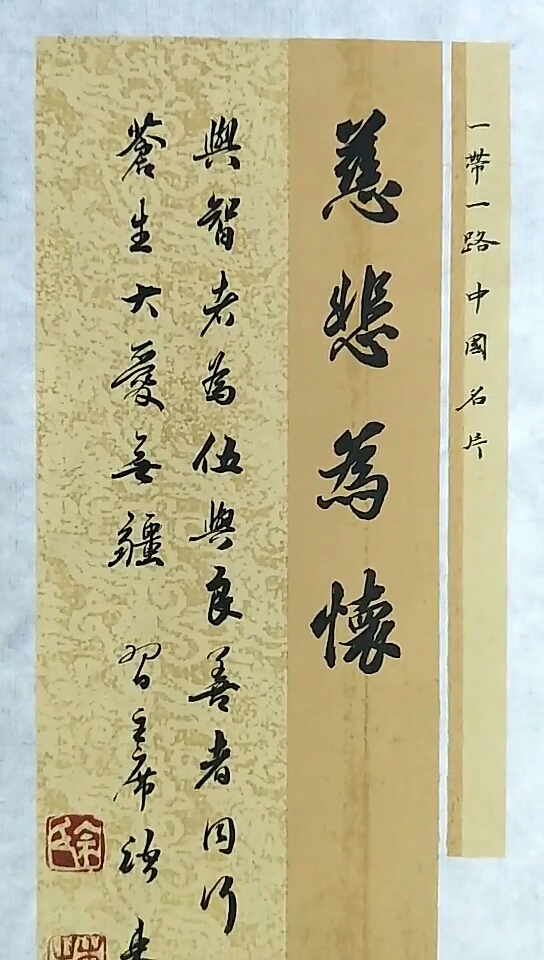 一帶一路中國名片
慈悲為懷
與智者為伍與良善者同行
蒼生大愛無疆 習主席語